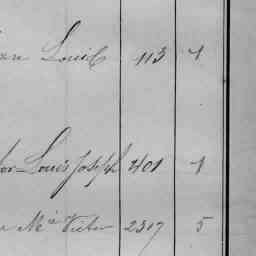 Louis 113 1
Louis Joseph 401 1
Mie Victor 2317 5